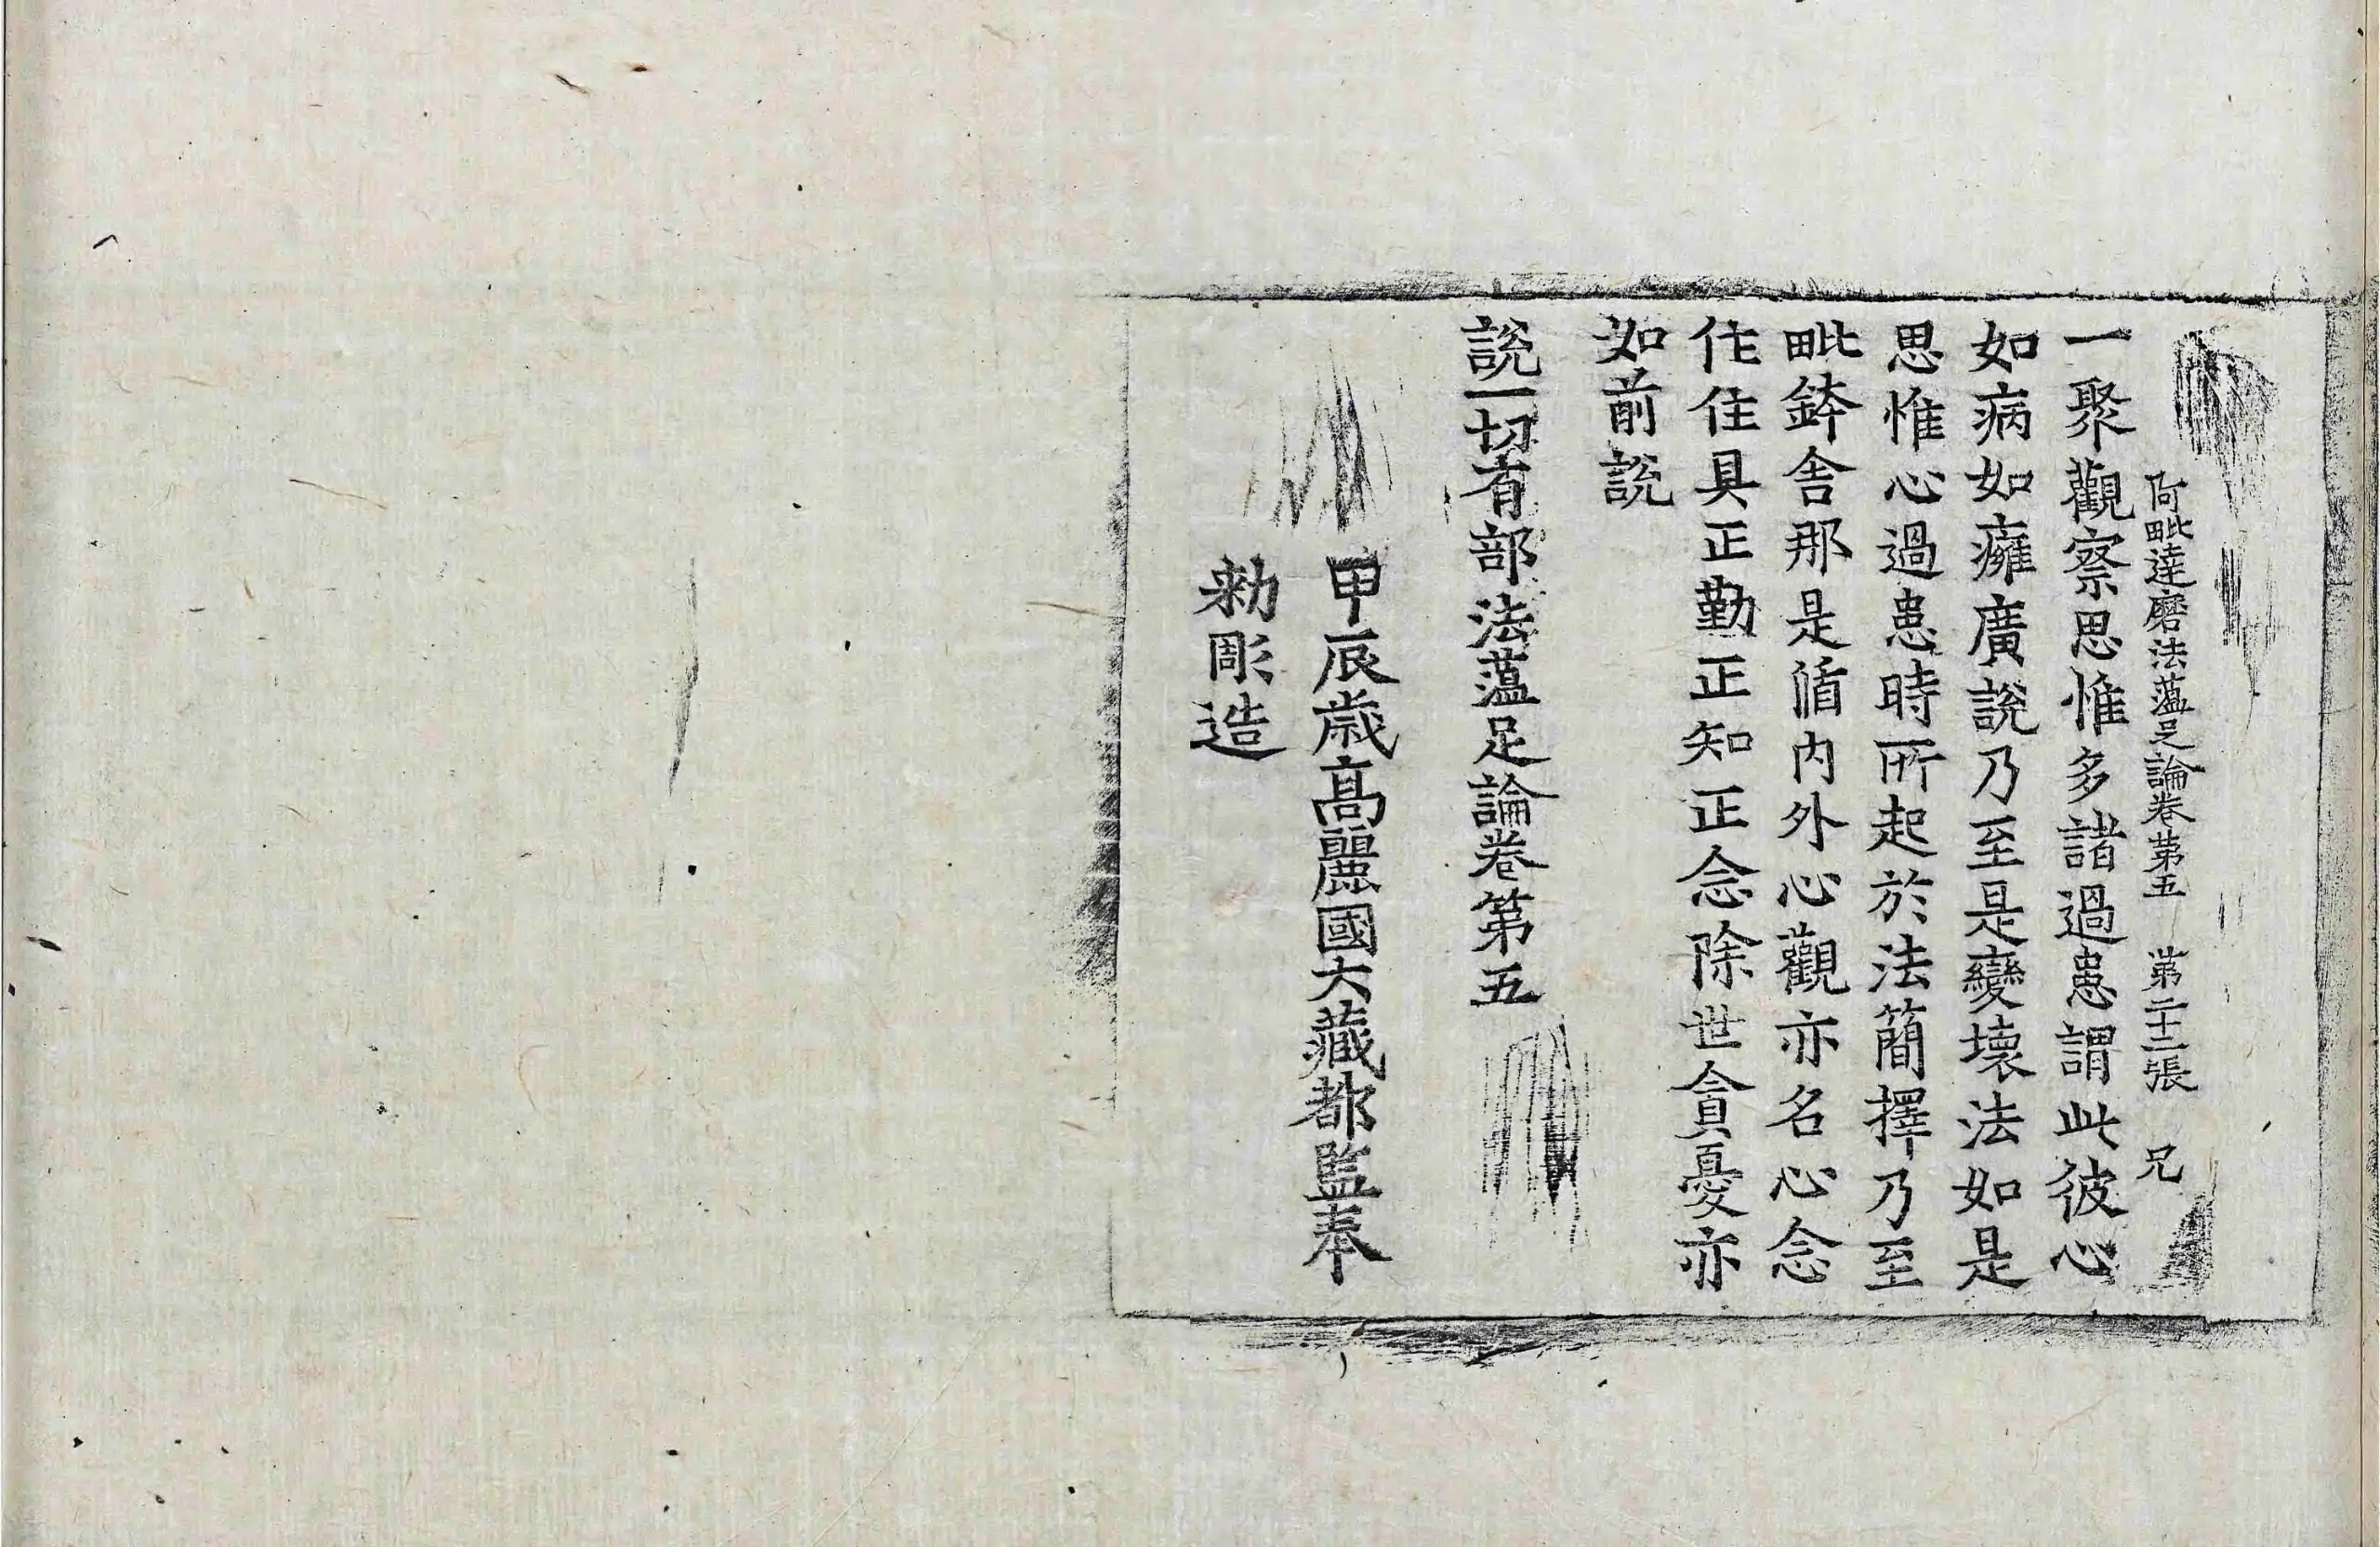 阿毗達磨法蘊足論卷第五 第二十二張 兄
一聚觀察思惟多諸過患謂此彼心
如病如癰廣說乃至是變壞法如是
思惟心過患時所起於法簡擇乃至
毗鉢舍那是循內外心觀亦名心念
住住具正勤正知正念除世貪憂亦
如前說
說一切有部法蘊足論卷第五
甲辰歲高麗國大藏都監奉
勅彫造